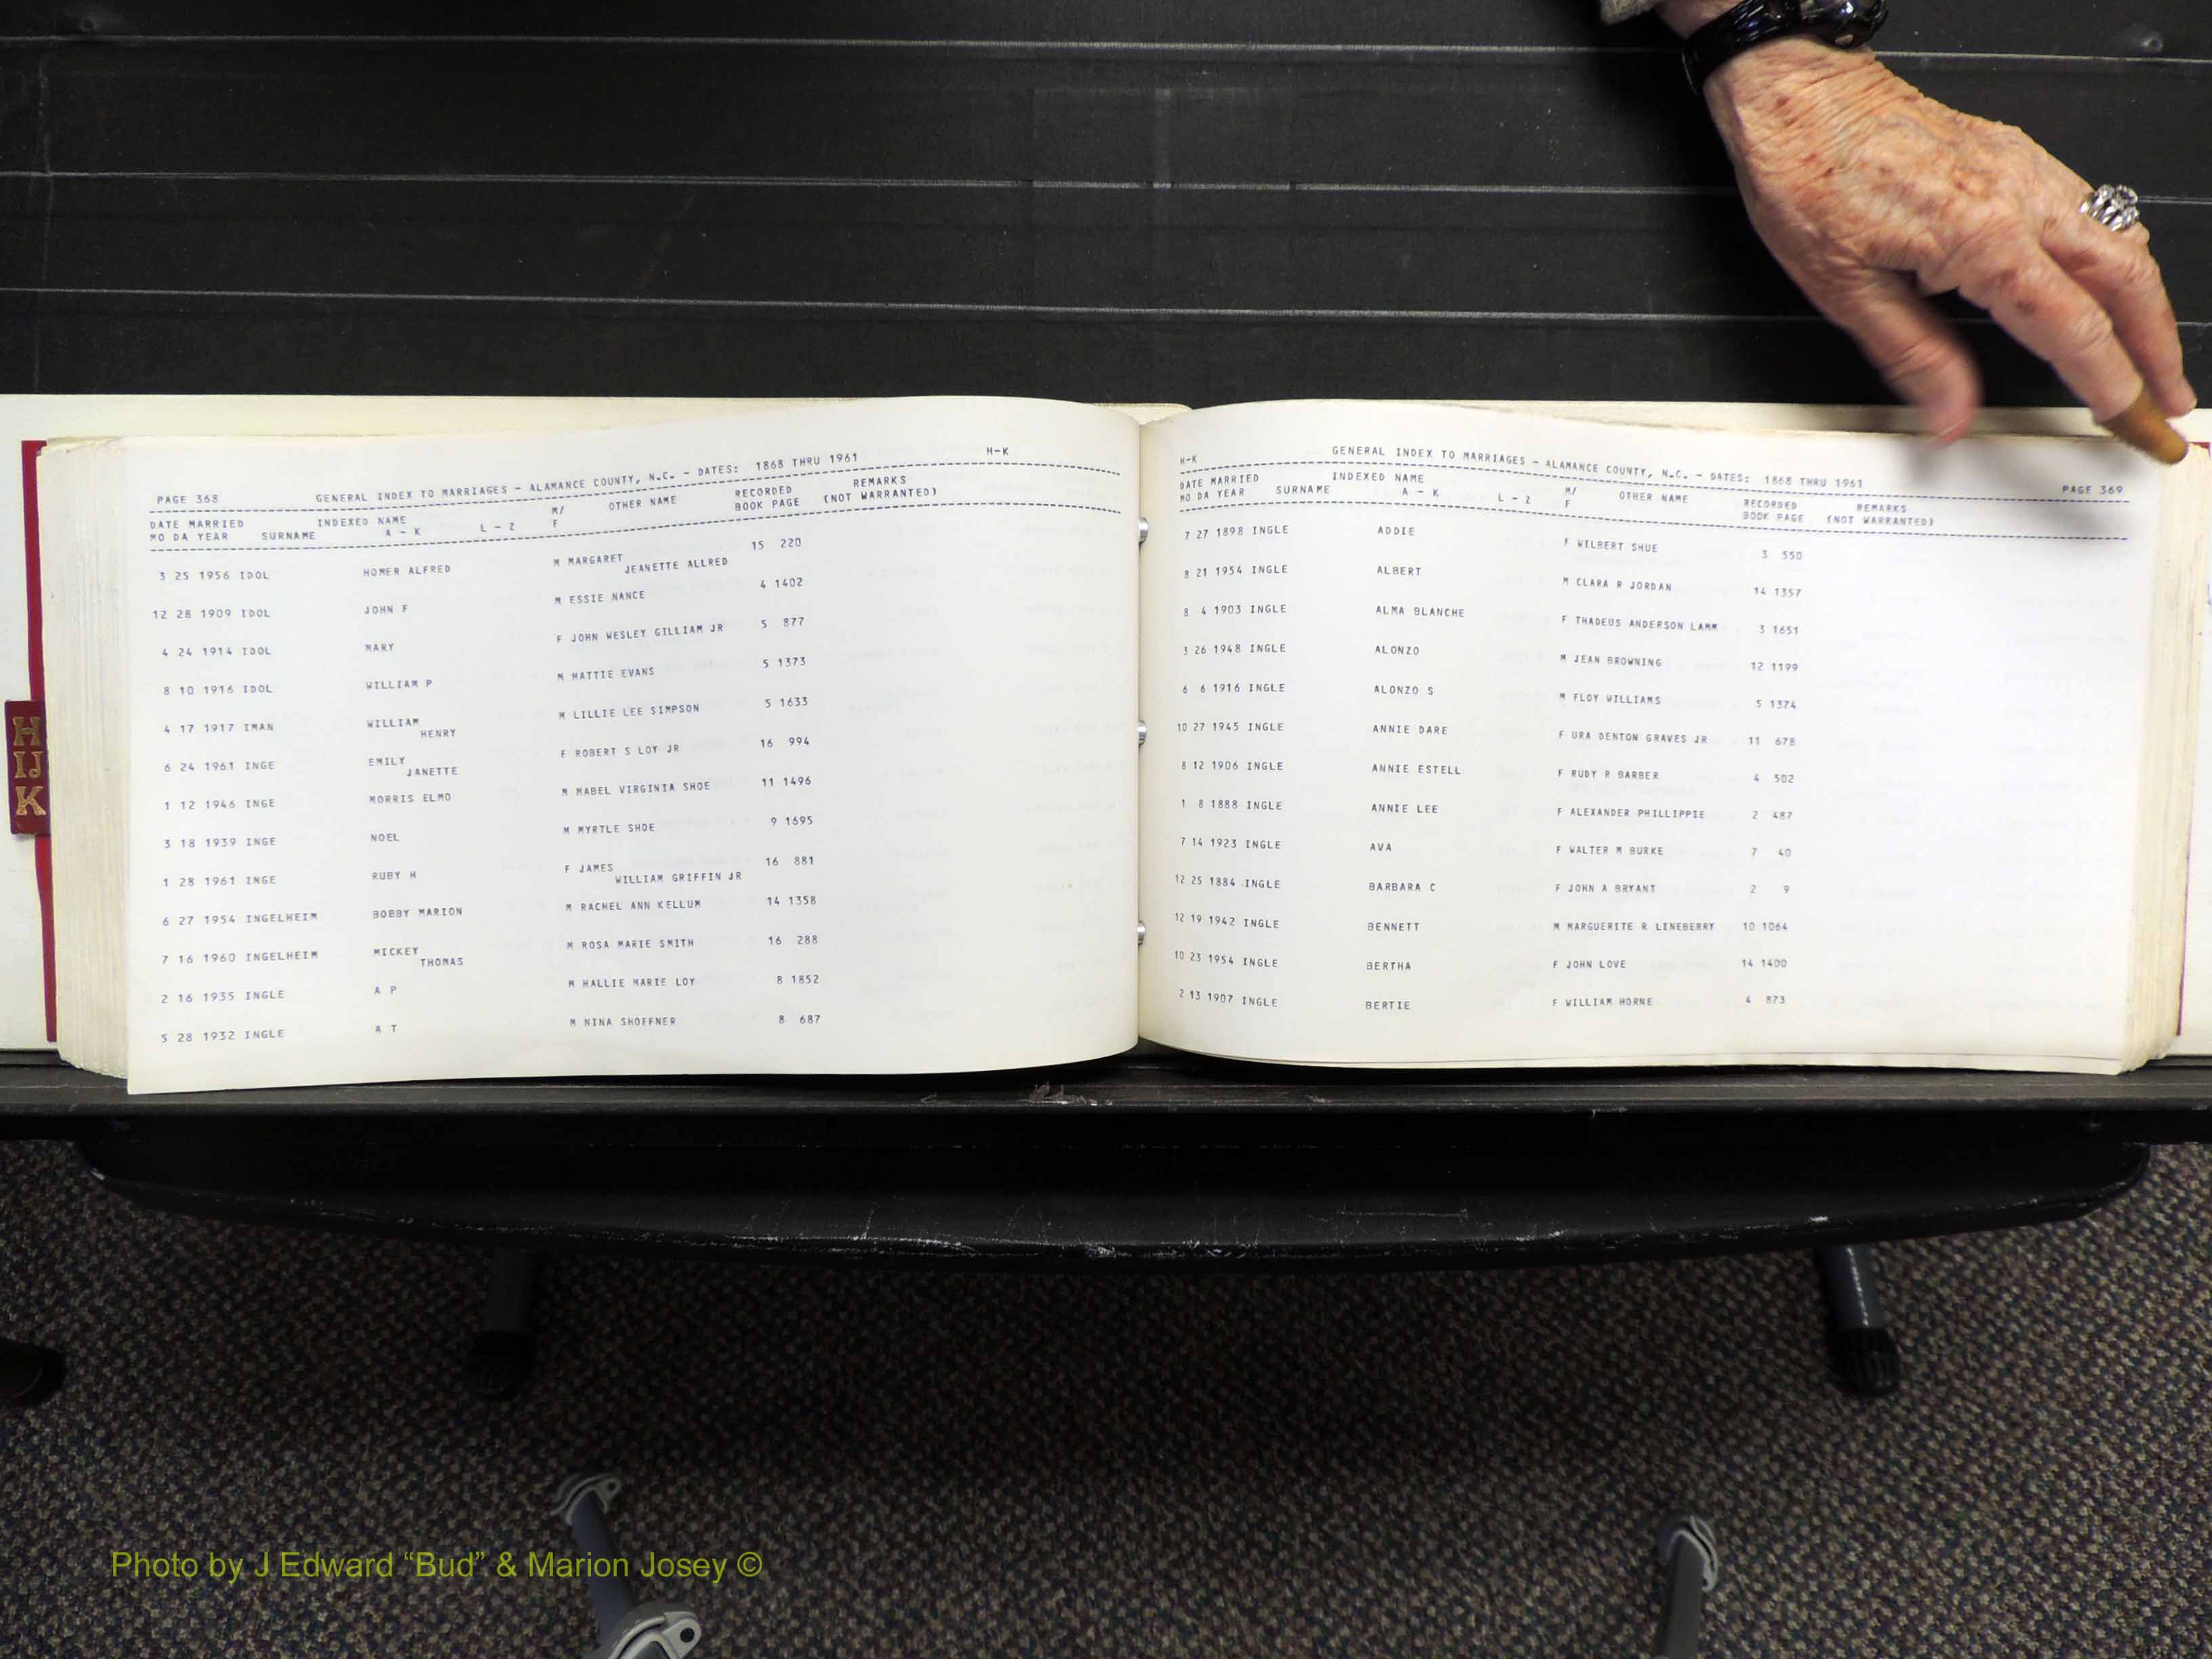 H
IJ
K
PAGE 368 GENERAL INDEX TO MARRIAGES - ALAMANCE COUNTY, N.C. - DATES: 1868 THRU 1961 H-K
DATE MARRIED INDEXED NAME M/ OTHER NAME RECORDED REMARKS
MO DA YEAR SURNAME A - K L - Z F BOOK PAGE (NOT WARRANTED)
3 25 1956 IDOL HOMER ALFRED M MARGARET 15 220
JEANETTE ALLRED
12 28 1909 IDOL JOHN F M ESSIE NANCE 4 1402
4 24 1914 IDOL MARY F JOHN WESLEY GILLIAM JR 5 877
8 10 1916 IDOL WILLIAM P M MATTIE EVANS 5 1373
4 17 1917 IMAN WILLIAM M LILLIE LEE SIMPSON 5 1633
HENRY
6 24 1961 INGE EMILY F ROBERT S LOY JR 16 994
JANETTE
1 12 1946 INGE MORRIS ELMO M MABEL VIRGINIA SHOE 11 1496
3 18 1939 INGE NOEL M MYRTLE SHOE 9 1695
1 28 1961 INGE RUBY H F JAMES 16 881
WILLIAM GRIFFIN JR
6 27 1954 INGELHEIM BOBBY MARION M RACHEL ANN KELLUM 14 1358
7 16 1960 INGELHEIM MICKEY M ROSA MARIE SMITH 16 288
THOMAS
2 16 1935 INGLE A P M HALLIE MARIE LOY 8 1852
5 28 1932 INGLE A T M NINA SHOFFNER 8 687
H-K GENERAL INDEX TO MARRIAGES - ALAMANCE COUNTY, N.C. - DATES: 1868 THRU 1961 PAGE 369
DATE MARRIED INDEXED NAME M/ OTHER NAME RECORDED REMARKS
MO DA YEAR SURNAME A - K L - Z F BOOK PAGE (NOT WARRANTED)
7 27 1898 INGLE ADDIE F WILBERT SHUE 3 550
8 21 1954 INGLE ALBERT M CLARA R JORDAN 14 1357
8 4 1903 INGLE ALMA BLANCHE F THADEUS ANDERSON LAMM 3 1651
3 26 1948 INGLE ALONZO M JEAN BROWNING 12 1199
6 6 1916 INGLE ALONZO S M FLOY WILLIAMS 5 1374
10 27 1945 INGLE ANNIE DARE F URA DENTON GRAVES JR 11 678
8 12 1906 INGLE ANNIE ESTELL F RUDY R BARBER 4 502
1 8 1888 INGLE ANNIE LEE F ALEXANDER PHILLIPPIE 2 487
7 14 1923 INGLE AVA F WALTER M BURKE 7 40
12 25 1884 INGLE BARBARA C F JOHN A BRYANT 2 9
12 19 1942 INGLE BENNETT M MARGUERITE R LINEBERRY 10 1064
10 23 1954 INGLE BERTHA F JOHN LOVE 14 1400
2 13 1907 INGLE BERTIE F WILLIAM HORNE 4 873
Photo by J Edward “Bud” & Marion Josey ©